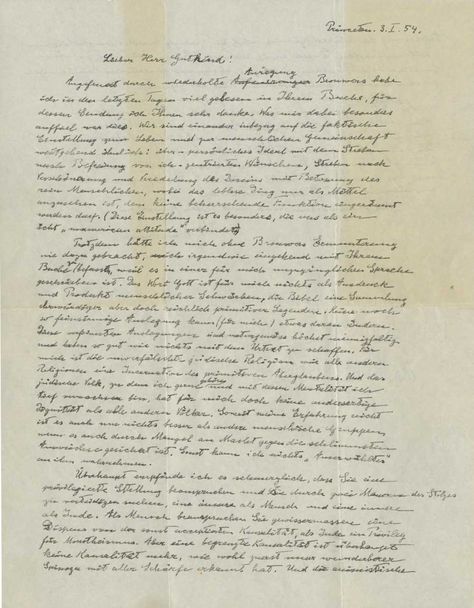 Princeton. 3. I. 54.
Lieber Herr Gutkind!
Angefeuert durch wiederholte Anregung Brouwers habe
ich in den letzten Tagen viel gelesen in Ihrem Buche, für
dessen Sendung ich Ihnen sehr danke. Was mir dabei besonders
auffiel war dies. Wir sind einander inbezug auf die faktische
Einstellung zum Leben und zur menschlichen Gemeinschaft
weitgehend ähnlich: Ihr persönliches Ideal mit dem Streben
nach Befreiung von ich-zentrierten Wünschen, Streben nach
Verschönerung und Veredelung des Daseins mit Betonung des
rein Menschlichen, wobei das leblose Ding nur als Mittel
anzusehen ist, dem keine beherrschende Funktion eingeräumt
werden darf. (Diese Einstellung ist es besonders, die uns als ein
echt „unamerican attitude" verbindet)
Trotzdem hätte ich mich ohne Brouwers Ermunterung
nie dazu gebracht, mich irgendwie eingehend mit Ihrem
Buche zu befassen, weil es in einer für mich unzugänglichen Sprache
geschrieben ist. Das Wort Gott ist für mich nichts als Ausdruck
und Produkt menschlicher Schwächen, die Bibel eine Sammlung
ehrwürdiger aber doch reichlich primitiver Legenden. Keine noch
so feinsinnige Auslegung kann (für mich) etwas daran ändern.
Diese verfeinerten Auslegungen sind naturgemäss höchst mannigfaltig
und haben so gut wie nichts mit dem Urtext zu schaffen. Für
mich ist die unverfälschte jüdische Religion wie alle anderen
Religionen eine Incarnation des primitiven Aberglaubens. Und das
jüdische Volk, zu dem ich gern gehöre und mit dessen Mentalität ich
tief verwachsen bin, hat für mich doch keine andersartige
Dignität als alle anderen Völker. Soweit meine Erfahrung reicht
ist es auch um nichts besser als andere menschliche Gruppen,
wenn es auch durch Mangel an Macht gegen die schlimmsten
Auswüchse gesichert ist. Sonst kann ich nichts „Auserwähltes"
an ihm wahrnehmen.
Überhaupt empfinde ich es schmerzlich, dass Sie eine
privilegierte Stellung beanspruchen und sie durch zwei Mauern des Stolzes
zu verteidigen suchen, eine äussere als Mensch und eine innere
als Jude. Als Mensch beanspruchen Sie gewissermassen einen
Dispens von der sonst acceptierten Kausalität, als Jude ein Privileg
für Monotheismus. Aber eine begrenzte Kausalität ist überhaupt
keine Kausalität mehr, wie wohl zuerst unser wunderbarer
Spinoza mit aller Schärfe erkannt hat. Und die animistische